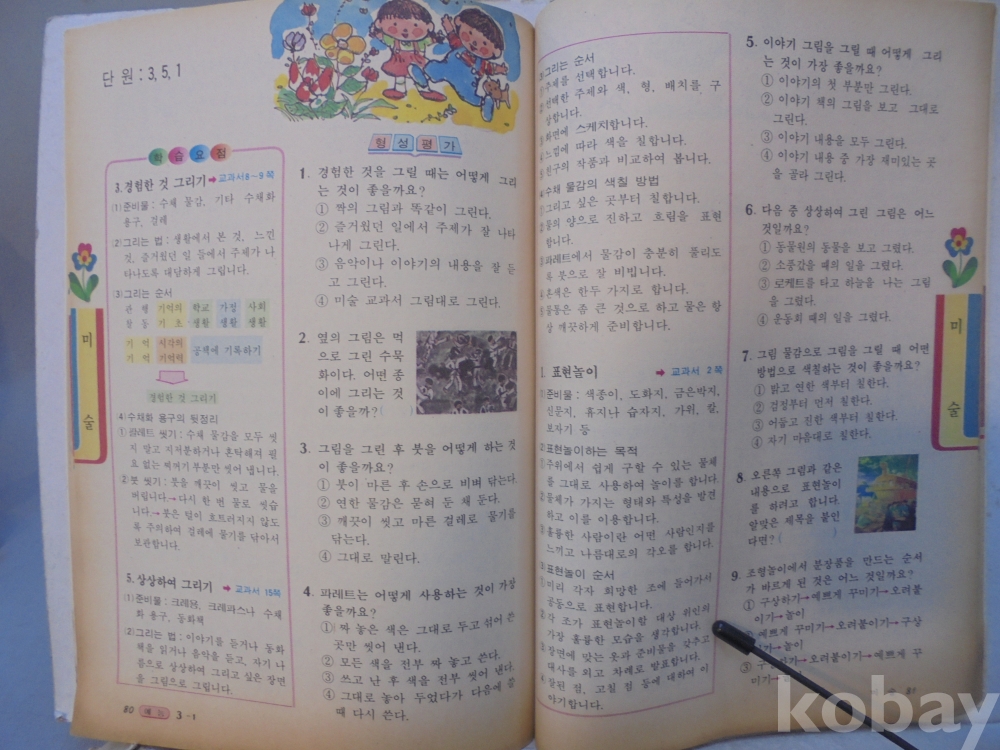 단 원 : 3, 5, 1
학 습 요 점
3. 경험한 것 그리기 → 교과서 8~9 쪽
(1)준비물 : 수채 물감, 기타 수채화
용구, 걸레
(2)그리는 법 : 생활에서 본 것, 느낀
것, 즐거웠던 일 들에서 주제가 나
타나도록 대담하게 그립니다.
(3)그리는 순서
관 평 기억의 학교 가정 사회
찰 동 기 초 생활 생활 생활
기 억 시각의 공책에 기록하기
기 억 기억력
경험한 것 그리기
(4)수채화 용구의 뒷정리
①팔레트 씻기 : 수채 물감을 모두 씻
지 말고 지저분하거나 혼탁해져 필
요 없는 찌꺼기 부분만 씻어 냅니다.
②붓 씻기 : 붓을 깨끗이 씻고 물을
버립니다.→다시 한 번 물로 씻습
니다.→붓은 털이 흐트러지지 않도
록 주의하여 걸레에 물기를 닦아서
보관합니다.
5. 상상하여 그리기 → 교과서 15쪽
(1)준비물 : 크레용, 크레파스나 수채
화 용구, 도화책
(2)그리는 법 : 이야기를 듣거나 동화
책을 읽거나 음악을 듣고, 자기 나
름으로 상상하여 그리고 싶은 장면
을 그림으로 그립니다.
80 예 능 3 -1
미
술
형 성 평 가
1. 경험한 것을 그릴 때는 어떻게 그리
는 것이 좋을까요?
① 짝의 그림과 똑같이 그린다.
② 즐거웠던 일에서 주제가 잘 나타
나게 그린다.
③ 음악이나 이야기의 내용을 잘 듣
고 그린다.
④ 미술 교과서 그림대로 그린다.
2. 옆의 그림은 먹
으로 그린 수묵
화이다. 어떤 종
이에 그리는 것
이 좋을까? ( )
3. 그림을 그린 후 붓을 어떻게 하는 것
이 좋을까요?
① 붓이 마른 후 손으로 비벼 닦는다.
② 연한 물감은 묻혀 둔 채 둔다.
③ 깨끗이 씻고 마른 걸레로 물기를
닦는다.
④ 그대로 말린다.
4. 파레트는 어떻게 사용하는 것이 가장
좋을까요?
① 짜 놓은 색은 그대로 두고 섞어 쓴
곳만 씻어 낸다.
② 모든 색을 전부 짜 놓고 쓴다.
③ 쓰고 난 후 색을 전부 씻어 낸다.
④ 그대로 놓아 두었다가 다음에 쓸
때 다시 쓴다.
그리는 순서
주제를 선택합니다.
선택한 주제와 색, 형, 배치를 구
상합니다.
화면에 스케치합니다.
느낌에 따라 색을 칠합니다.
친구의 작품과 비교하여 봅니다.
수채 물감의 색칠 방법
그리고 싶은 곳부터 칠합니다.
물의 양으로 진하고 흐림을 표현
합니다.
파레트에서 물감이 충분히 풀리도
록 붓으로 잘 비빕니다.
혼색은 한두 가지로 합니다.
물통은 좀 큰 것으로 하고 물은 항
상 깨끗하게 준비합니다.
1. 표현놀이 → 교과서 2쪽
(1)준비물 : 색종이, 도화지, 금은박지,
신문지, 휴지나 습자지, 가위, 칼,
보자기 등
(2)표현놀이하는 목적
주위에서 쉽게 구할 수 있는 물체
를 그대로 사용하여 놀이를 합니다.
물체가 가지는 형태와 특성을 발견
하고 이를 이용합니다.
훌륭한 사람이란 어떤 사람인지를
느끼고 나름대로의 각오를 합니다.
(3)표현놀이 순서
미리 각자 희망한 조에 들어가서
공동으로 표현합니다.
각 조가 표현놀이할 대상 위인의
가장 훌륭한 모습을 생각합니다.
장면에 맞는 옷과 준비물을 갖추고
대사를 외고 차례로 발표합니다.
잘된 점, 고칠 점 등에 대하여 이
야기합니다.
5. 이야기 그림을 그릴 때 어떻게 그리
는 것이 가장 좋을까요?
① 이야기의 첫 부분만 그린다.
② 이야기 책의 그림을 보고 그대로
그린다.
③ 이야기 내용을 모두 그린다.
④ 이야기 내용 중 가장 재미있는 곳
을 골라 그린다.
6. 다음 중 상상하여 그린 그림은 어느
것일까요?
① 동물원의 동물을 보고 그렸다.
② 소풍갔을 때의 일을 그렸다.
③ 로케트를 타고 하늘을 나는 그림
을 그렸다.
④ 운동회 때의 일을 그렸다.
7. 그림 물감으로 그림을 그릴 때 어떤
방법으로 색칠하는 것이 좋을까요?
① 밝고 연한 색부터 칠한다.
② 검정부터 먼저 칠한다.
③ 어둡고 진한 색부터 칠한다.
④ 자기 마음대로 칠한다.
8. 오른쪽 그림과 같은
내용으로 표현놀이
를 하려고 합니다.
알맞은 제목을 붙인
다면? ( )
9. 조형놀이에서 분장품을 만드는 순서
가 바르게 된 것은 어느 것일까요?
① 구상하기→예쁘게 꾸미기→오려붙
이기→놀이
② 예쁘게 꾸미기→오려붙이기→구상
하기→놀이
→오려붙이기→예쁘게 꾸
미기→
미
술
81
kobay